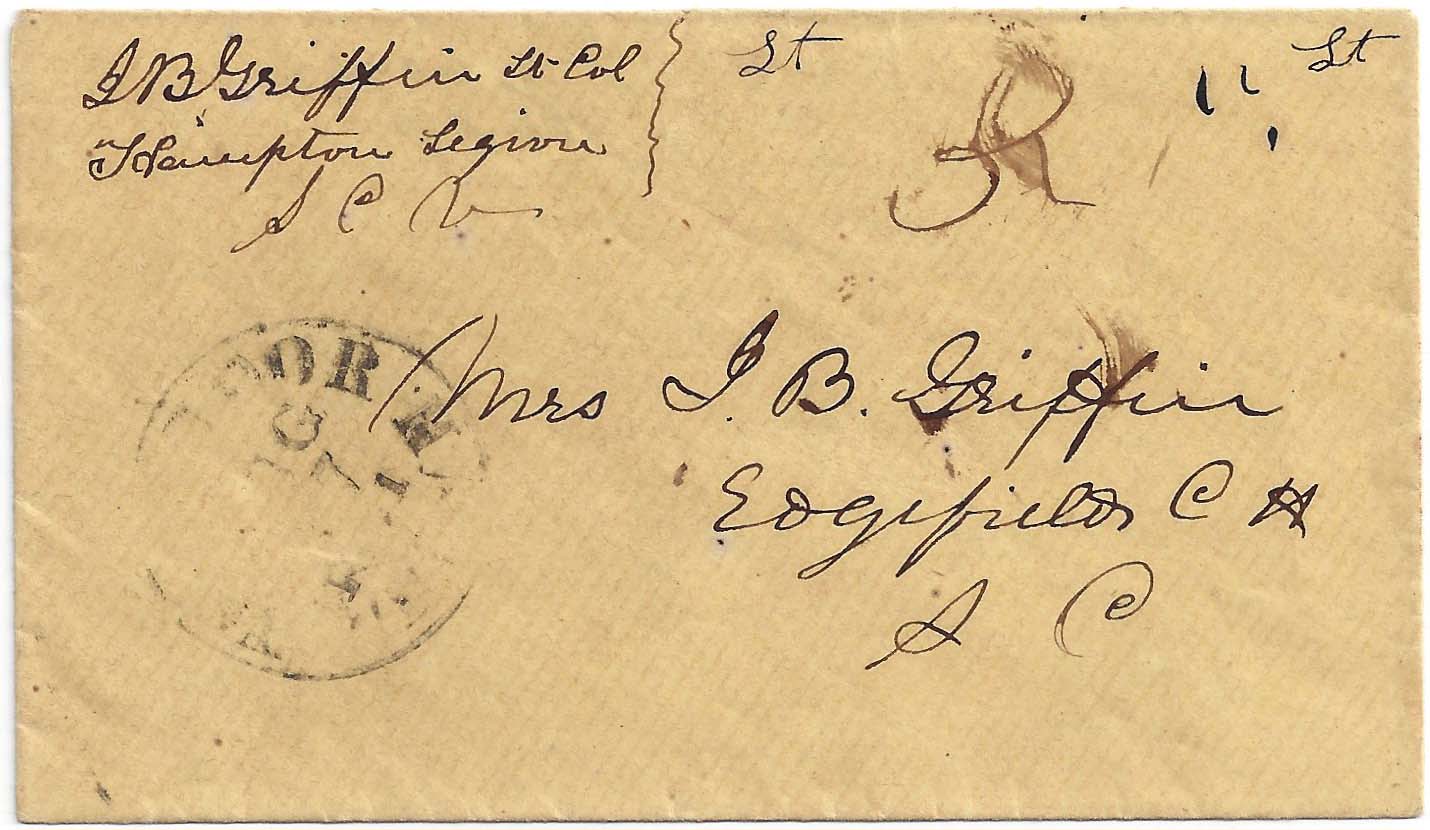 J B Griffin Lt Col
Hampton Legion
S C V
Lt
Lt
Mrs J. B. Griffin
Edgefield C H
S C